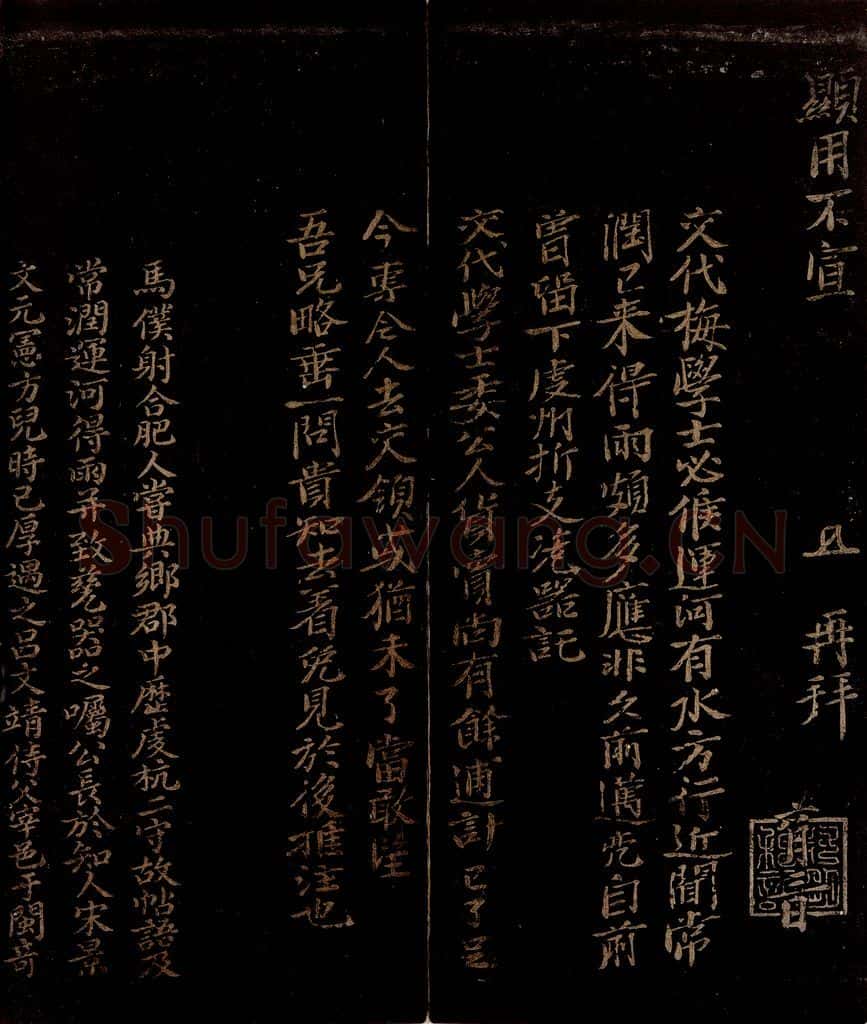 顯用不宣
且 再拜
二日
交代梅學士必候運河有水方行近聞常
潤已来得雨頗多應非久前邁旡自前
曾留下虔州折支瓷器託
交代學士委公人貨賣尚有餘逋計已了足
今專令人去交領或猶未了當敢望
吾兄略垂一問貴知去着免見於後推注也
馬僕射合肥人嘗典鄉郡中歷虔杭二守故帖語及
常潤運河得雨并致瓷器之囑公長於知人宋景
文元憲方兒時已厚遇之呂文靖侍父宰邑于閩奇
Shufawang.CN